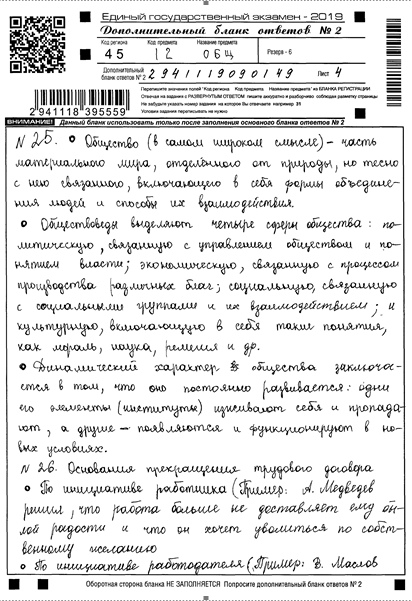 Единый государственный экзамен - 2019
Дополнительный бланк ответов № 2
Код региона Код предмета Название предмета
45 12 ОБЩ Резерв - 6
Дополнительный бланк ответов № 2 2941119090149 Лист 4
Перепишите значения полей "Код региона", "Код предмета", "Название предмета" из БЛАНКА РЕГИСТРАЦИИ
Отвечая на задания с РАЗВЕРНУТЫМ ОТВЕТОМ пишите аккуратно и разборчиво, соблюдая разметку страницы
Не забудьте указать номер задания на которое Вы отвечаете например 31
2941118395559
ВНИМАНИЕ! Данный бланк использовать только после заполнения основного бланка ответов № 2
N 25. • Общество (в самом широком смысле) – часть
материального мира, отделённого от природы, но тесно
с нею связанного, включающего в себя формы объедине-
ния людей и способы их взаимодействия.
• Обществоведы выделяют четыре сферы общества: по-
литическую, связанную с управлением обществом и по-
нятием власти; экономическую, связанную с процессом
производства различных благ; социальную, связанную
с социальными группами и их взаимодействием; и
культурную, включающую в себя такие понятия,
как мораль, наука, религия и др.
• Динамический характер общества заключа-
ется в том, что оно постоянно развивается: одни
его элементы (институты) изживают себя и пропада-
ют, а другие – появляются и функционируют в но-
вых условиях.
N 26. Основания прекращения трудового договора
• По инициативе работника (Пример: А. Медведев
решил, что работа больше не доставляет ему бы-
лой радости и что он хочет уволиться по собст-
венному желанию
• По инициативе работодателя (Пример: В. Маслов
Оборотная сторона бланка НЕ ЗАПОЛНЯЕТСЯ Попросите дополнительный бланк ответов № 2